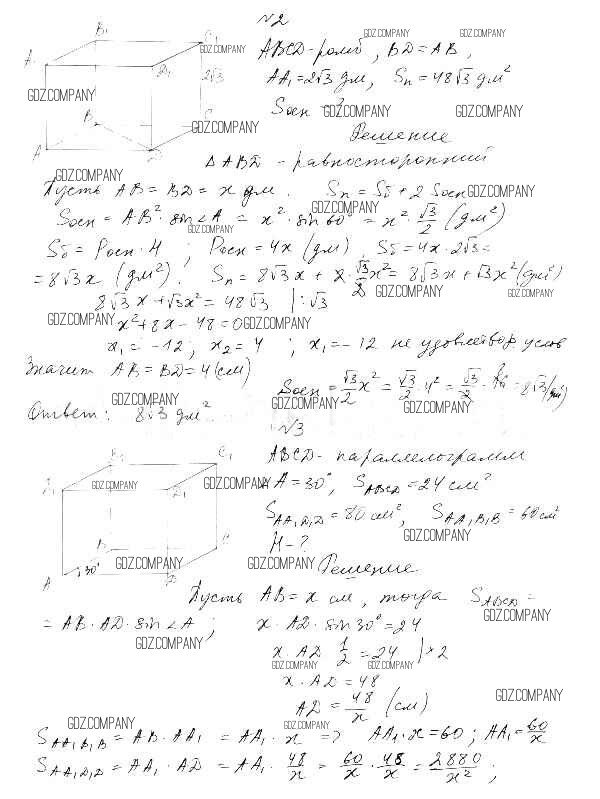 №2
ABCD-ромб, BD=AB,
AA₁=2√3 дм, Sп=48√3 дм²
Sосн -?
Решение
△ABD - равносторонний
Пусть AB=BD=x дм. Sп=Sб+2Sосн
Sосн=AB²·sin∠A = x²·sin60°=x²·√3/2 (дм²)
Sб=Pосн·H ; Pосн=4x (дм) Sб=4x·2√3=
=8√3x (дм²). Sп=8√3x+2·√3/2x²=8√3x+√3x²(дм²)
8√3x+√3x²=48√3 |:√3
x²+8x-48=0
x₁=-12; x₂=4 ; x₁=-12 не удовлетвор. услов
Значит AB=BD=4(см)
Sосн=√3/2x²=√3/2·4²=√3/2·16=8√3(дм²)
Ответ: 8√3 дм²
A B C D A₁ B₁ C₁ D₁ 2√3
№3
ABCD-параллелограмм
∠A=30°, SABCD=24 см²
SAA₁D₁D=80 см², SAA₁B₁B=60 см²
H-?
Решение
A B C D B₁ C₁ D₁ 30°
Пусть AB=x см, тогда SABCD=
=AB·AD·sin∠A; x·AD·sin30°=24
x·AD·1/2=24 |×2
x·AD=48
AD=48/x (см)
SAA₁B₁B=AB·AA₁=AA₁·x => AA₁·x=60; AA₁=60/x
SAA₁D₁D=AA₁·AD=AA₁·48/x=60/x·48/x=2880/x²;
GDZ.COMPANY